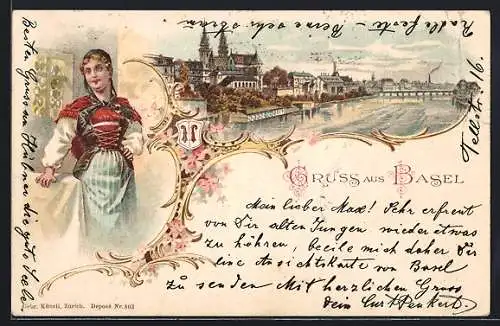 GRUSS AUS BASEL
Mein lieber Max! Sehr erfreut
von Dir alten Jungen wieder etwas
zu höhren, beeile mich daher Dir
eine Ansichtskarte von Basel
zu senden Mit herzlichen Gruss
Dein Curt
Besten Gruss an Hübner die gute Seele
Tellstr. 16.
Gebr. Künzli, Zürich. Deposé Nr. 503